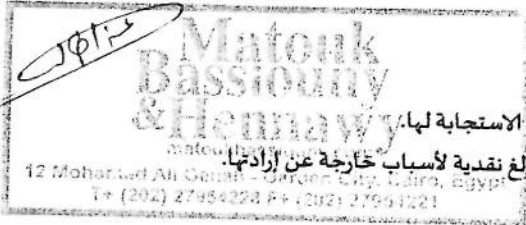 Matouk
Bassiouny
& Hennawy
الاستجابة لها.
لغ نقدية لأسباب خارجة عن إرادتها.
12 Mohamed Ali Genah - Garden City, Cairo, Egypt
T+ (202) 27954228 F+ (202) 27954221